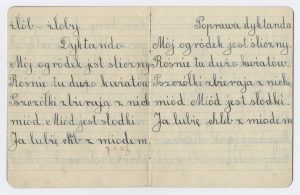 żłób - żłoby.
Dyktando.
Mój ogródek jest śliczny
Rośnie tu dużo kwiatów
Pszczółki zbierają z nich
miód. Miód jest słodki.
Ja lubię chlb z miodem
Poprawa dyktanda.
Mój ogródek jest śliczny.
Rośnie tu dużo kwiatów.
Pszczółki zbierają z nich
miód. Miód jest słodki.
Ja lubię chleb z miodem